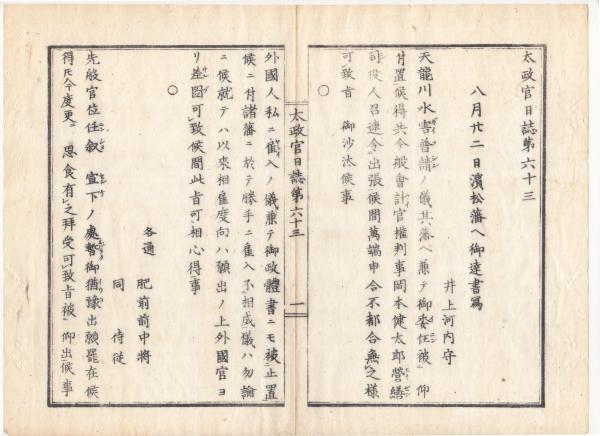 太政官日誌第六十三
八月廿二日濱松藩ヘ御達書寫
井上河内守
天龍川水害普請ノ儀其藩ヘ兼テ御委任被 仰
付置候得共今般會計官權判事岡本健太郎營繕
司役人召連令出張候間萬端申合不都合無之様
可致旨 御沙汰候事
○
外國人私ニ雇入ノ儀兼テ御政體書ニモ被止置
候ニ付諸藩ニ於テ勝手ニ雇入不相成儀ハ勿論
ニ候就テハ以來相雇度向ハ願出ノ上外國官ヨ
リ差圖可致候間此旨可相心得事
○
各通
肥前前中將
同 侍従
先般官位任叙 宣下ノ處暫御猶豫出願罷在候
得共今度更ニ 思食有之拜受可致旨被 仰出候事
太政官日誌第六十三
一